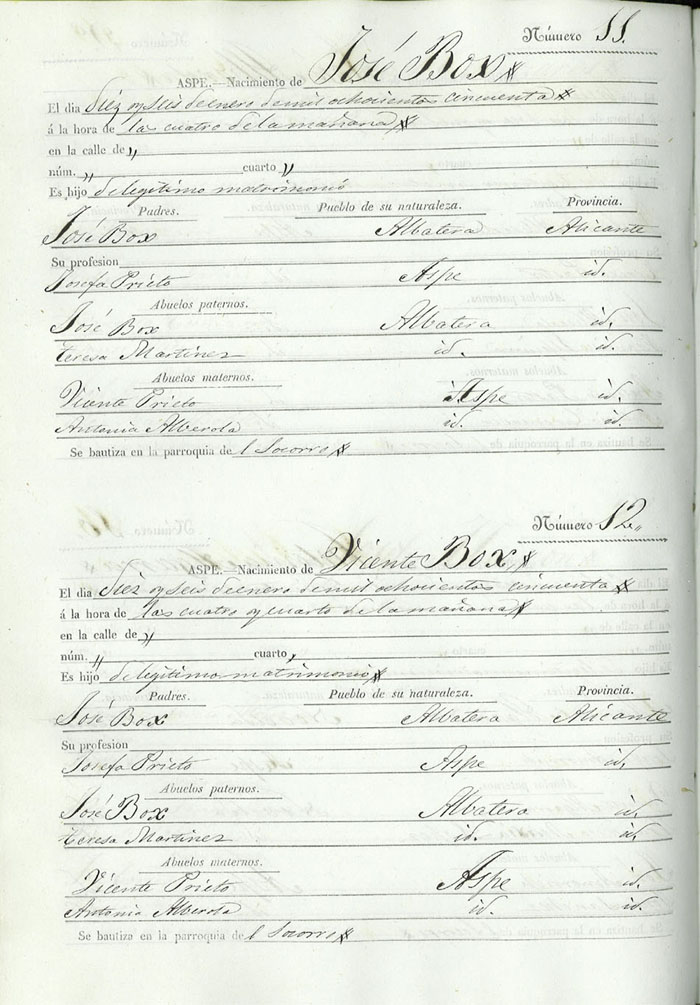 Número 11.
ASPE.—Nacimiento de José Box
El dia diez y seis de enero de mil ochocientos cincuenta
á la hora de las cuatro de la mañana
en la calle de „
núm. „ cuarto „
Es hijo de legitimo matrimonio
Padres. Pueblo de su naturaleza. Provincia.
José Box Albatera Alicante
Su profesion
Josefa Prieto Aspe id.
Abuelos paternos.
José Box Albatera id.
Teresa Martinez id. id.
Abuelos maternos.
Vicente Prieto Aspe id.
Antonia Alberola id. id.
Se bautiza en la parroquia del Socorro
Número 12„
ASPE.—Nacimiento de Vicente Box,
El dia diez y seis de enero de mil ochocientos cincuenta
á la hora de las cuatro y cuarto de la mañana
en la calle de „
núm. „ cuarto „
Es hijo de legitimo matrimonio
Padres. Pueblo de su naturaleza. Provincia.
José Box Albatera Alicante
Su profesion
Josefa Prieto Aspe id.
Abuelos paternos.
José Box Albatera id.
Teresa Martinez id. id.
Abuelos maternos.
Vicente Prieto Aspe id.
Antonia Alberola id. id.
Se bautiza en la parroquia del Socorro